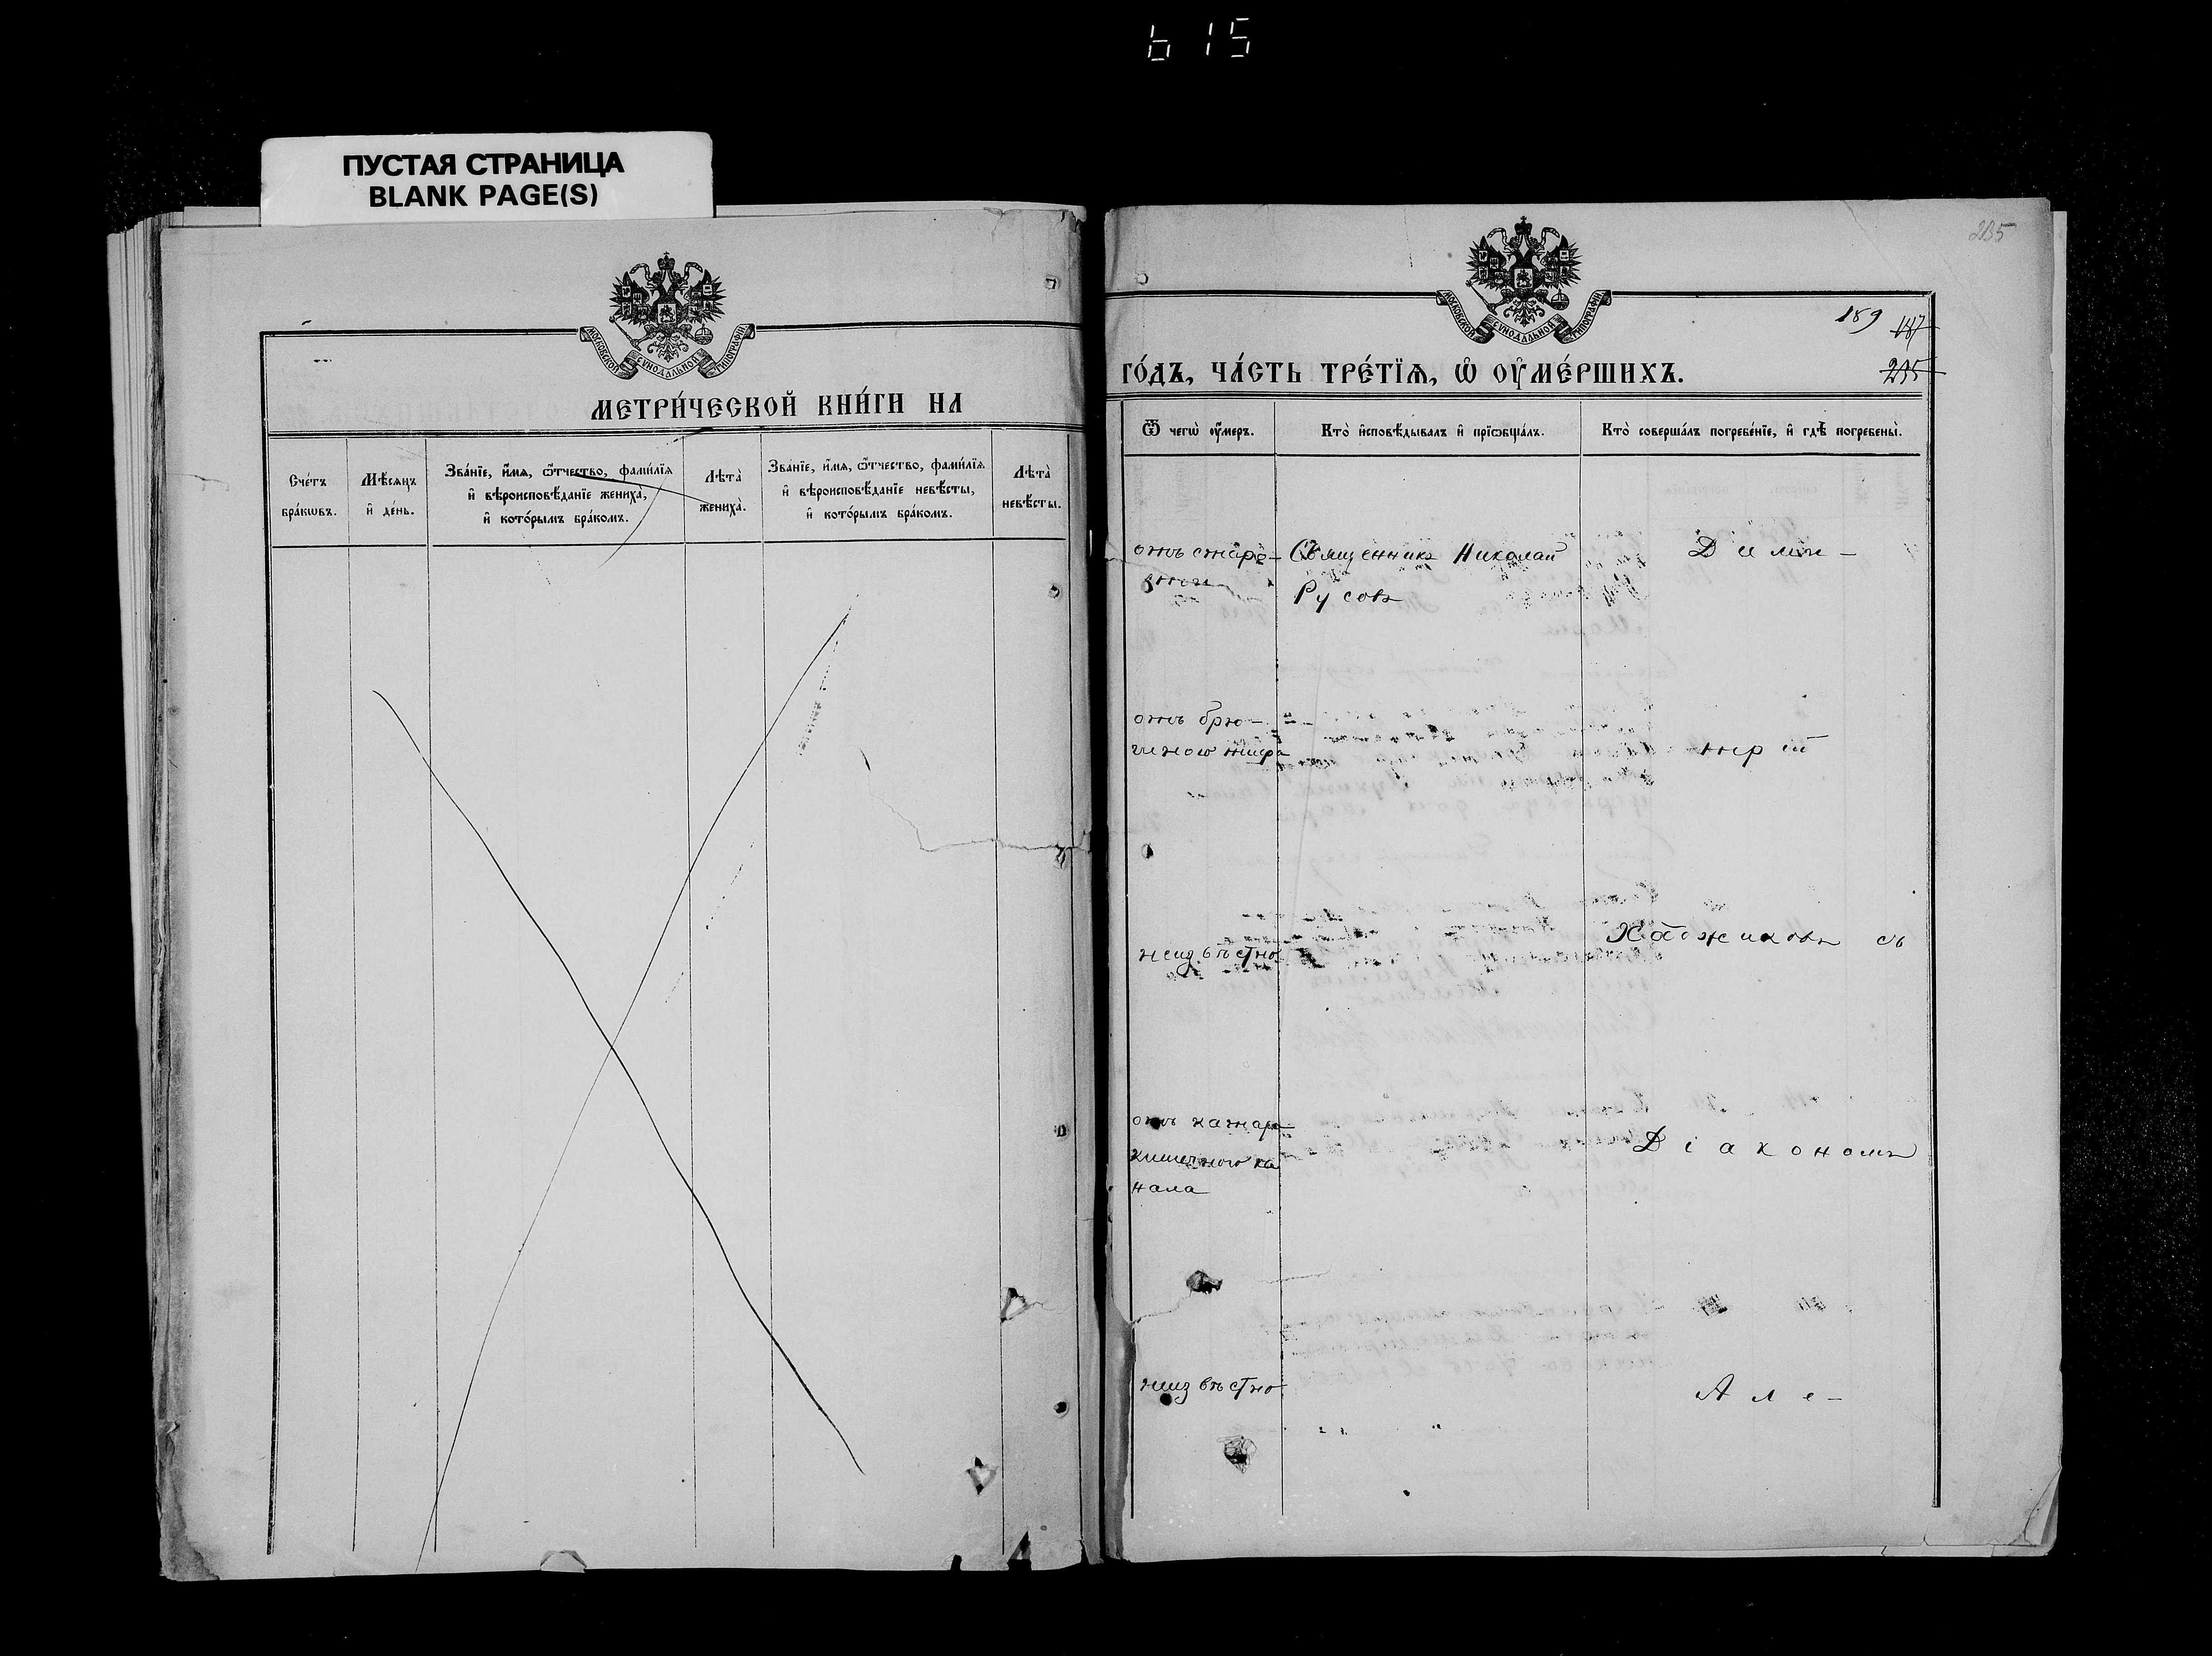 615
ПУСТАЯ СТРАНИЦА
BLANK PAGE(S)
МОСКОВСКОЙ СУНОДАЛЬНОЙ ТИПОГРАФІИ
МЕТРИ́ЧЕСКОЙ КНИ́ГИ НА
Сче́тъ бра́кѡвъ.
Мѣ́сяцъ и҆ де́нь.
Зва́нїе, и҆́мѧ, ѻ҆́тчество, фами́лїѧ
и҆ вѣроисповѣ́данїе жениха̀,
и҆ кото́рымъ бра́комъ.
Лѣта̀ жениха̀.
Зва́нїе, и҆́мѧ, ѻ҆́тчество, фами́лїѧ
и҆ вѣроисповѣ́данїе невѣ́сты,
и҆ кото́рымъ бра́комъ.
Лѣта̀ невѣ́сты.
235
МОСКОВСКОЙ СУНОДАЛЬНОЙ ТИПОГРАФІИ
189
187
235
ГО́ДЪ, ЧА́СТЬ ТРЕ́ТЇѦ, Ѡ҆ ОУ҆МЕ́РШИХЪ.
Ѿ чегѡ̀ оу҆́меръ.
Кто̀ и҆сповѣ́дывалъ и҆ прїѡбща́лъ.
Кто̀ соверша́лъ погребе́нїе, и҆ гдѣ̀ погребены̀.
отъ старо-
Священникъ Николай
Дим-
сти
Русовъ
отъ брю-
шного тифа
трій
неизвѣстно
Хаджиковъ съ
отъ катара
кишечного ка
нала
Діакономъ
неизвѣстно
Але-